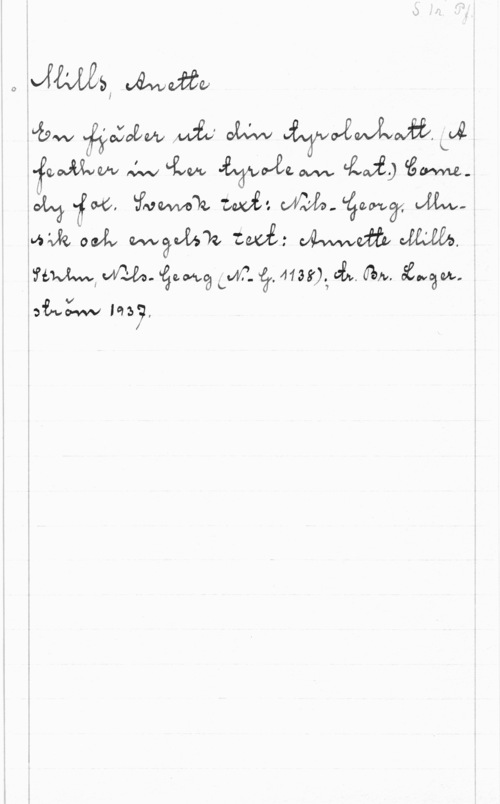 S In Pf.
Mills, Anette
En fjäder uti din tyrolerhatt. (A
feather in her tyrolean hat.) Come-
dy fox. Svensk text: Nils-Georg. Mu-
sik och engelsk text: Annette Mills.
Sthlm, Nils-Georg (N.-G. 1138); tr. Br. Lager-
ström 1937.